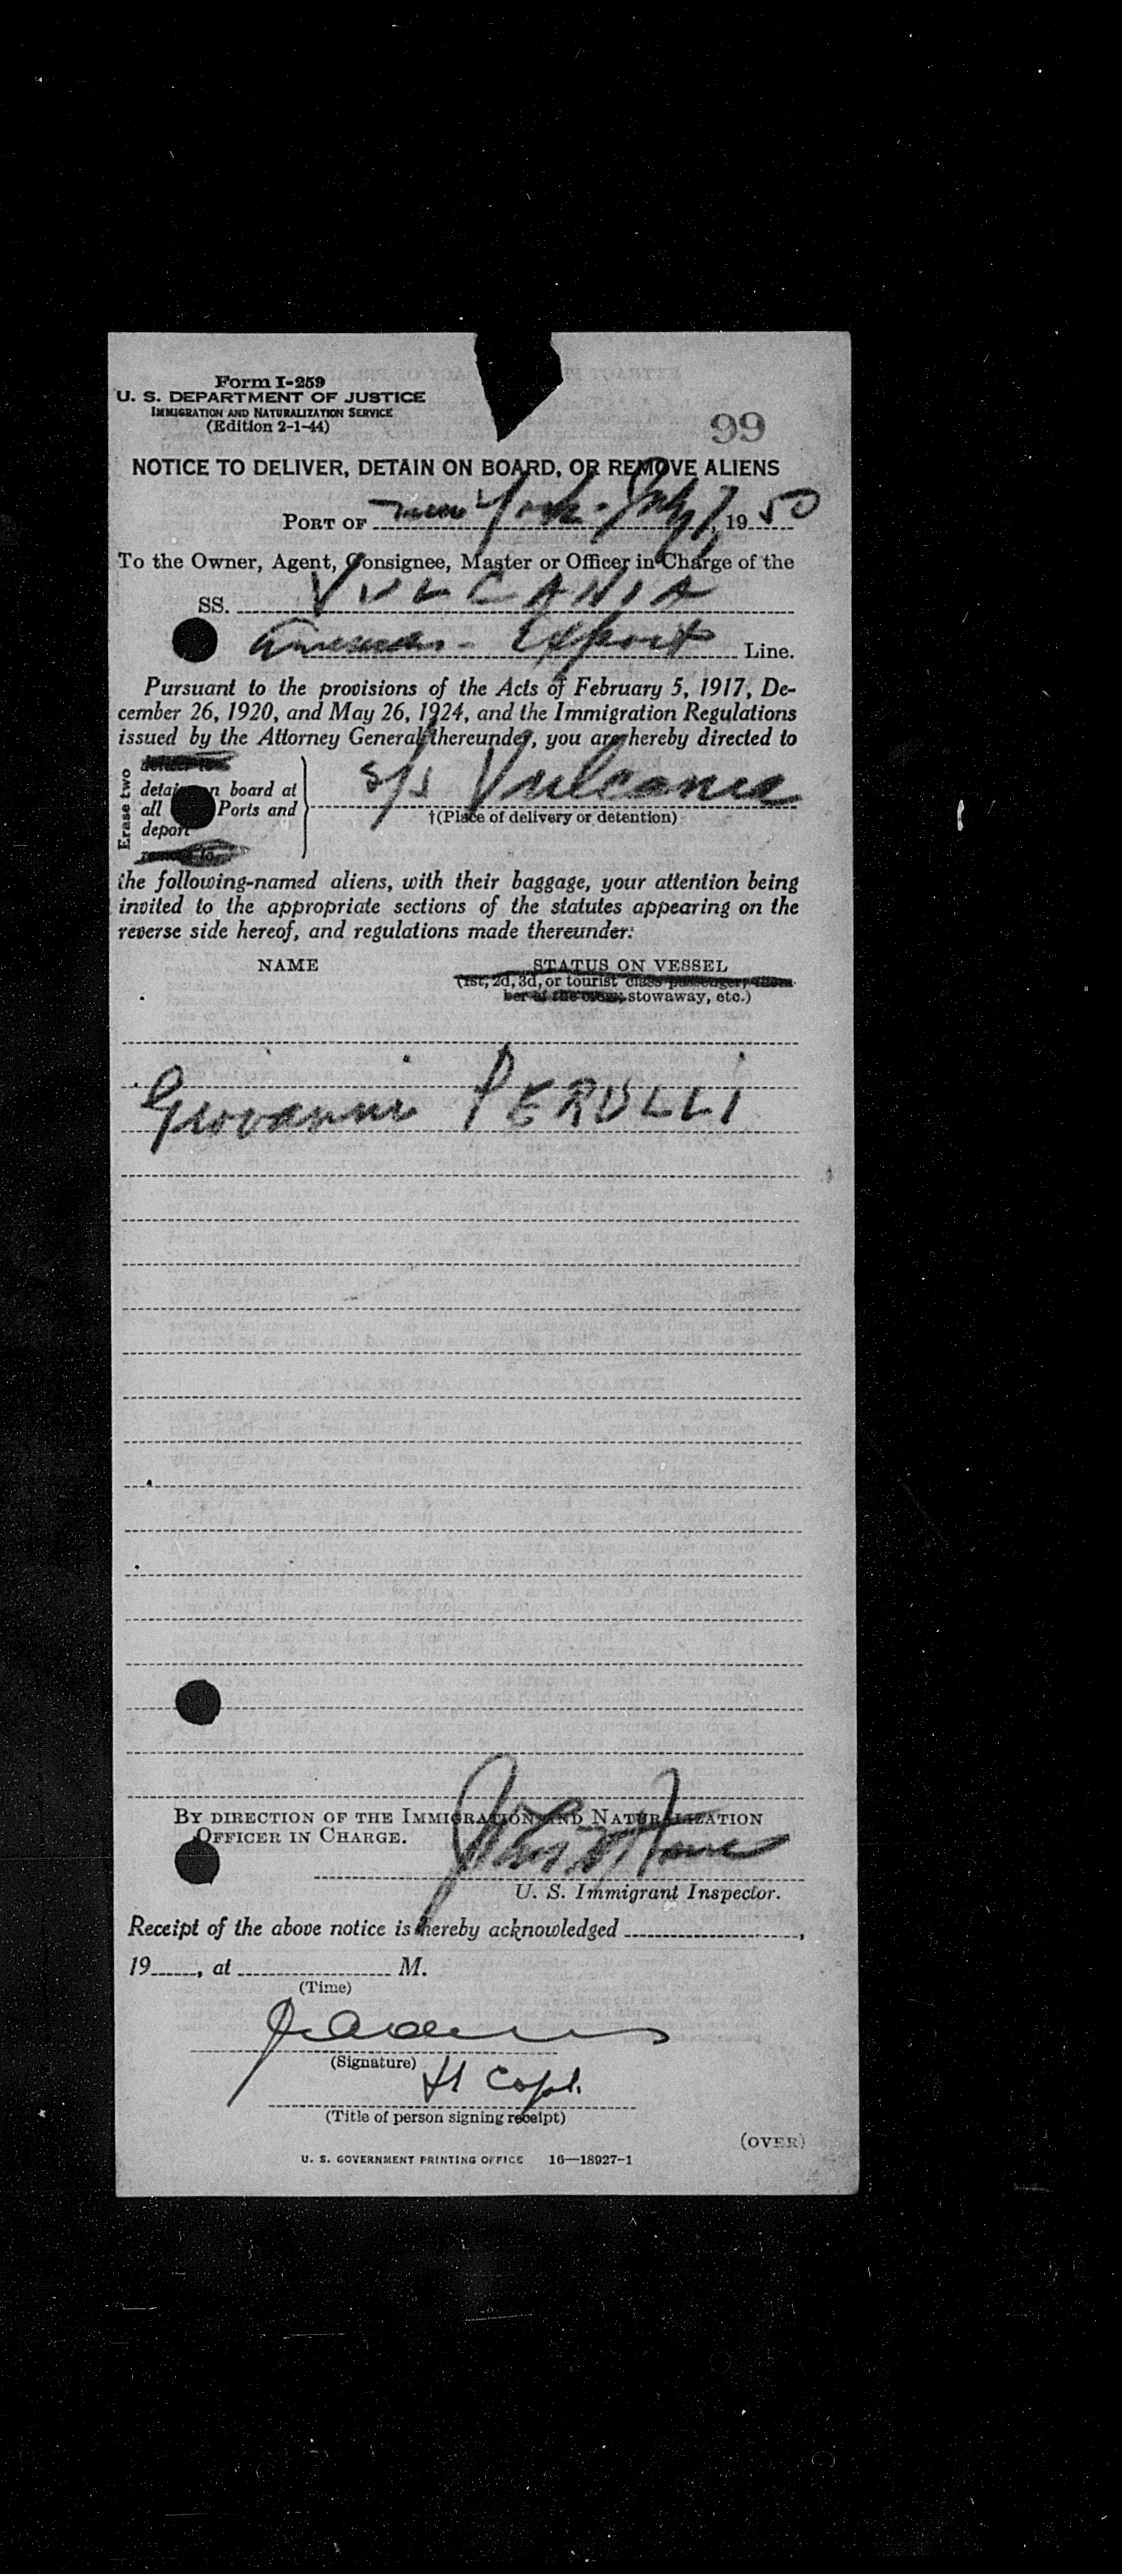 Form I-259
U. S. DEPARTMENT OF JUSTICE
IMMIGRATION AND NATURALIZATION SERVICE
(Edition 2-1-44)
99
NOTICE TO DELIVER, DETAIN ON BOARD, OR REMOVE ALIENS
PORT OF New York - July 7, 1950
To the Owner, Agent, Consignee, Master or Officer in Charge of the
SS. VULCANIA
American - Export Line.
Pursuant to the provisions of the Acts of February 5, 1917, De-
cember 26, 1920, and May 26, 1924, and the Immigration Regulations
issued by the Attorney General thereunder, you are hereby directed to
Erase two
detain on board at
all Ports and
deport
s/s Vulcania
†(Place of delivery or detention)
the following-named aliens, with their baggage, your attention being
invited to the appropriate sections of the statutes appearing on the
reverse side hereof, and regulations made thereunder:
NAME STATUS ON VESSEL
(1st, 2d, 3d, or tourist class passenger, mem-
ber of the crew, stowaway, etc.)
Giovanni PERULLI
BY DIRECTION OF THE IMMIGRATION AND NATURALIZATION
OFFICER IN CHARGE.
U. S. Immigrant Inspector.
Receipt of the above notice is hereby acknowledged ,
19 , at M.
(Time)
(Signature)
Capt.
(Title of person signing receipt)
(OVER)
U. S. GOVERNMENT PRINTING OFFICE 16—18927-1